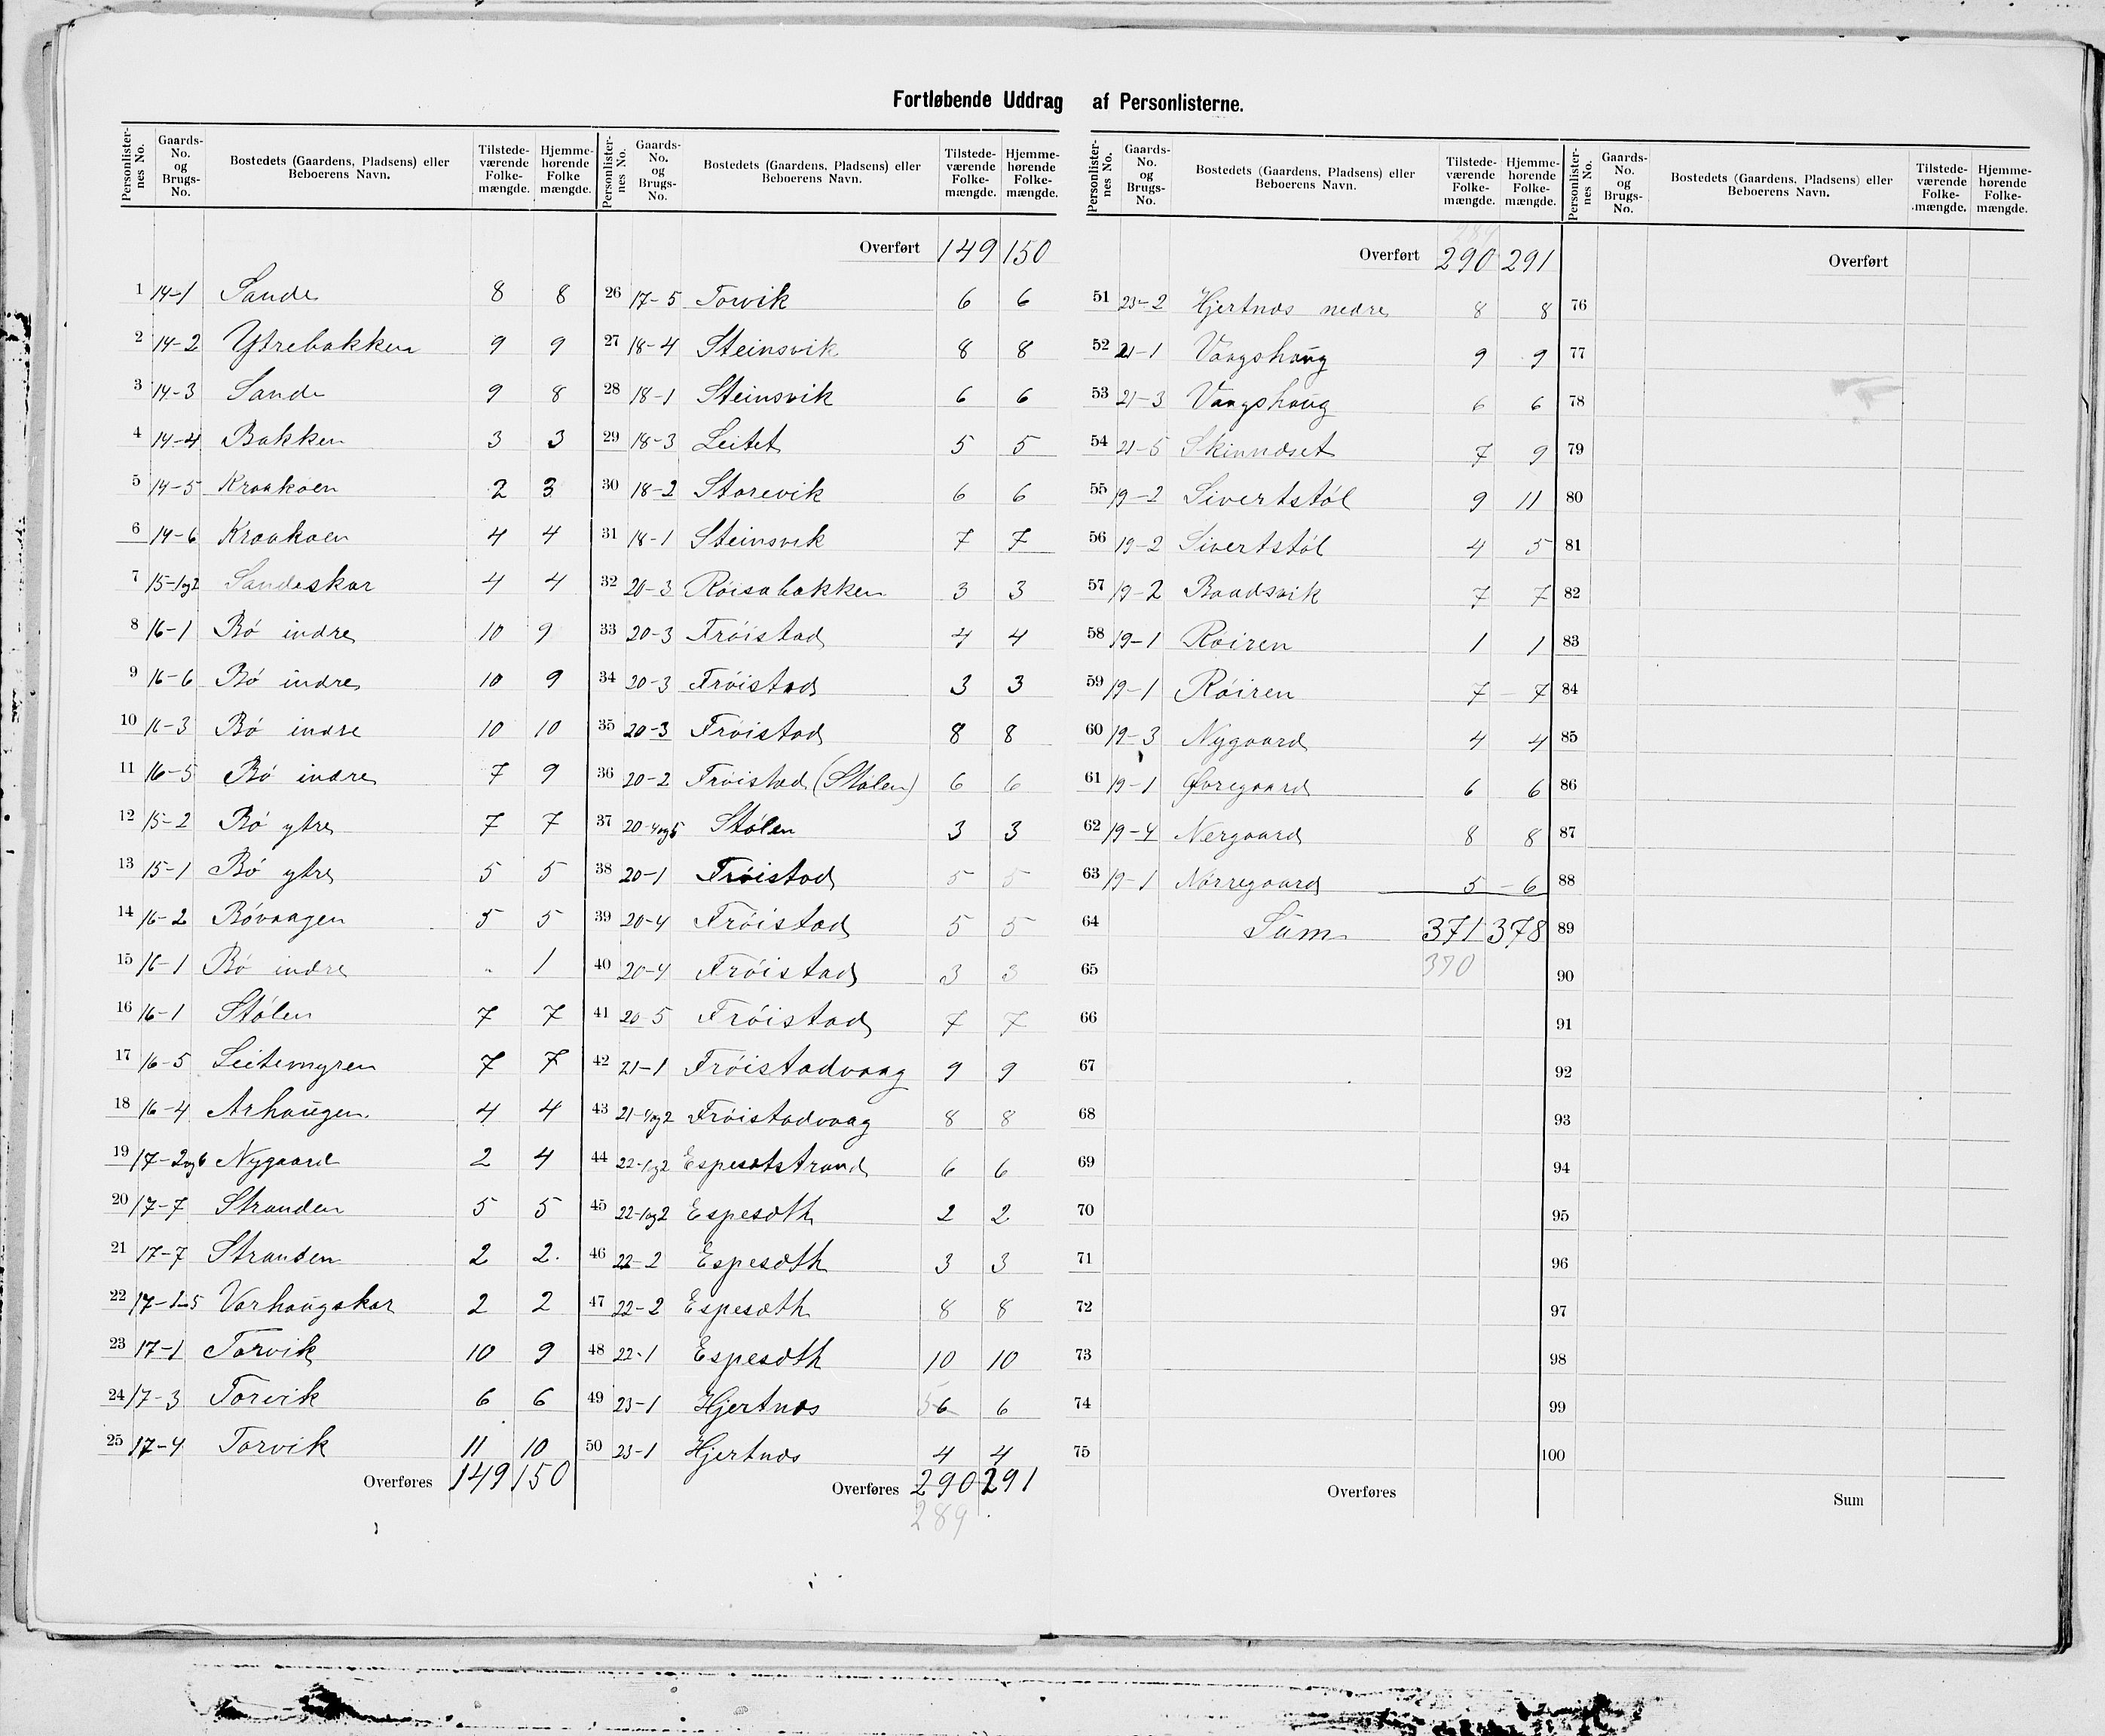 Fortløbende Uddrag af Personlisterne.
Personlister-nes No. Gaards-No. og Brugs-No. Bostedets (Gaardens, Pladsens) eller Beboerens Navn. Tilstede-værende Folke-mængde. Hjemme-hørende Folke mængde.
1 14-1 Sande 8 8
2 14-2 Ytrebakken 9 9
3 14-3 Sande 9 8
4 14-4 Bakken 3 3
5 14-5 Kraakaen 2 3
6 14-6 Kraakaen 4 4
7 15-1og2 Sandeskar 4 4
8 16-1 Bó indre 10 9
9 16-6 Bó indre 10 9
10 16-3 Bó indre 10 10
11 16-5 Bó indre 7 9
12 15-2 Bó ytre 7 7
13 15-1 Bó ytre 5 5
14 16-2 Bóvaagen 5 5
15 16-1 Bó indre - 1
16 16-1 Stólen 7 7
17 16-5 Leitemyren 7 7
18 16-4 Arhaugen 4 4
19 17-2og6 Nygaard 2 4
20 17-7 Stranden 5 5
21 17-7 Stranden 2 2
22 17-1-5 Varhaugskar 2 2
23 17-1 Torvik 10 9
24 17-3 Torvik 6 6
25 17-4 Torvik 11 10
Overføres 149 150
Personlister-nes No. Gaards-No. og Brugs-No. Bostedets (Gaardens, Pladsens) eller Beboerens Navn. Tilstede-værende Folke-mængde. Hjemme-hørende Folke-mængde.
Overført 149 150
26 17-5 Torvik 6 6
27 18-4 Steinsvik 8 8
28 18-1 Steinsvik 6 6
29 18-3 Leitet 5 5
30 18-2 Storevik 6 6
31 18-1 Steinsvik 7 7
32 20-3 Róisabakken 3 3
33 20-3 Fróistad 4 4
34 20-3 Fróistad 3 3
35 20-3 Fróistad 8 8
36 20-2 Fróistad (Stólen) 6 6
37 20-4og5 Stólen 3 3
38 20-1 Fróistad 5 5
39 20-4 Fróistad 5 5
40 20-4 Fróistad 3 3
41 20-5 Fróistad 7 7
42 21-1 Fróistadvaag 9 9
43 21-4og2 Fróistadvaag 8 8
44 22-1og2 Espesætstrand 6 6
45 22-1og2 Espesæth 2 2
46 22-2 Espesæth 3 3
47 22-2 Espesæth 8 8
48 22-1 Espesæth 10 10
49 23-1 Hjertnæs 5 6 6
50 23-1 Hjertnæs 4 4
Overføres 290 291
289
Personlister-nes No. Gaards-No. og Brugs-No. Bostedets (Gaardens, Pladsens) eller Beboerens Navn. Tilstede-værende Folke-mængde. Hjemme-hørende Folke-mængde.
289
Overført 290 291
51 23-2 Hjertnæs nedre 8 8
52 21-1 Vaagshaug 9 9
53 21-3 Vaagshaug 6 6
54 21-5 Skinnæset 7 9
55 19-2 Sivertstól 9 11
56 19-2 Sivertstól 4 5
57 19-2 Baadsvik 7 7
58 19-1 Róiren 1 1
59 19-1 Róiren 7 7
60 19-3 Nygaard 4 4
61 19-1 Øvregaard 6 6
62 19-4 Nergaard 8 8
63 19-1 Nórregaard 5 6
64 Sum 371 378
65 370
66
67
68
69
70
71
72
73
74
75
Overføres
Personlister-nes No. Gaards-No. og Brugs-No. Bostedets (Gaardens, Pladsens) eller Beboerens Navn. Tilstede-værende Folke-mængde. Hjemme-hørende Folke-mængde.
Overført
76
77
78
79
80
81
82
83
84
85
86
87
88
89
90
91
92
93
94
95
96
97
98
99
100
Sum